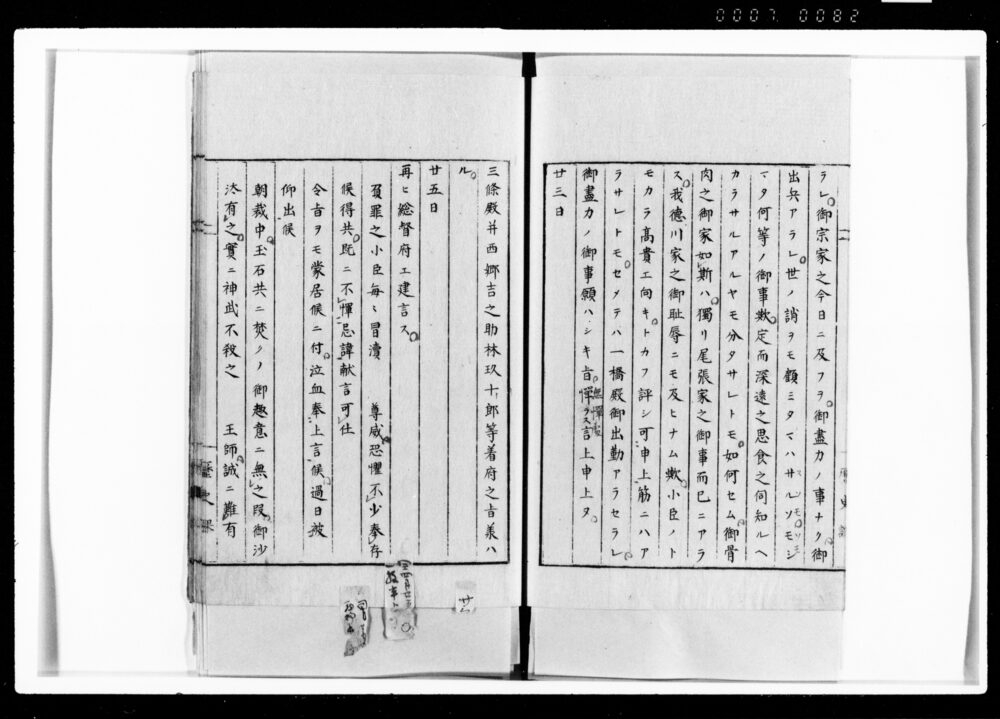 0007 0082
ラレ。御宗家之今日ニ及フヲ。御盡カノ事ナク御
出兵アラレ。世ノ誚ヲモ顧ミタマハサルソモシ
マタ何等ノ御事歟。定而深遠之思食之伺知ルヘ
カラサルアルヤモ分タサレトモ。如何セム御骨
肉之御家如斯ハ。獨リ尾張家之御事而已ニアラ
ス。我德川家之御耻辱ニモ及ヒナム歟。小臣ノト
モカラ高貴エ向キ。トカフ評シ可申上筋ニハア
ラサレトモ。セメテハ一橋殿御出勤アラセラレ。
御盡力ノ御事願ハシキ旨。無憚憚ラス言上申上タ。
廿三日
三條殿并西鄉吉之助林玖十郎等着府之旨義ハ
ル。
廿五日
再ヒ総督府エ建言ス。
負罪之小臣每〻冒瀆　尊威恐懼不少奉存
候得共。既ニ不憚忌諱献言可仕
令旨ヲモ蒙居候ニ付。泣血奉上言候。過日被
仰出候
朝裁中。玉石共ニ焚クノ御趣意ニ無之段。御沙
汰有之。實ニ神武不殺之　王師。誠ニ難有
歴史課
廿一